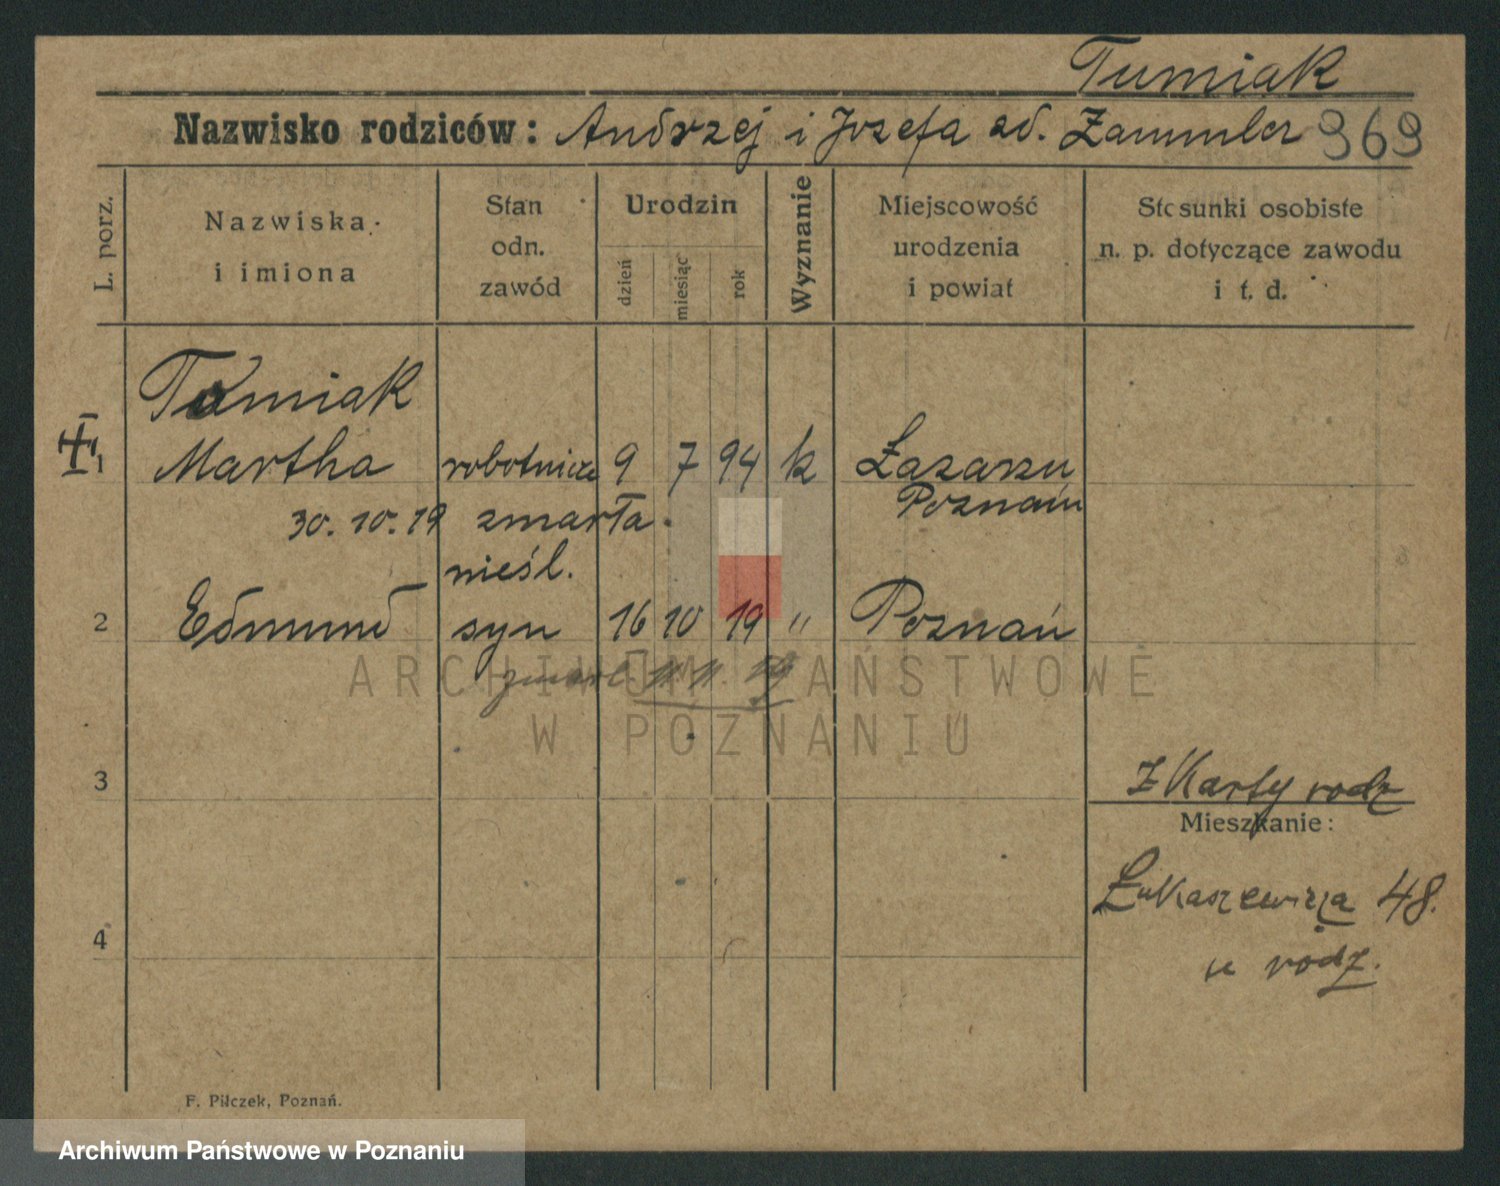 Tumiak
Nazwisko rodziców: Andrzej i Jozefa zd. Zammler 969
L. porz.
Nazwiska
i imiona
Stan
odn.
zawód
Urodzin
dzień
miesiąc
rok
Wyznanie
Miejscowość
urodzenia
i powiat
Stosunki osobiste
n. p. dotyczące zawodu
i t. d.
Tumiak
1 Martha robotnica 9 7 94 k Łazarzu
Poznań
30. 10. 19 zmarła.
nieśl.
2 Edmund syn 16 10 19 " Poznań
zmarł 11. 11. 19
3
z Karty rodz
Mieszkanie:
Łukaszewicza 48.
4
u rodz.
F. Pilczek, Poznań.
ARCHIWUM PAŃSTWOWE
W POZNANIU
Archiwum Państwowe w Poznaniu